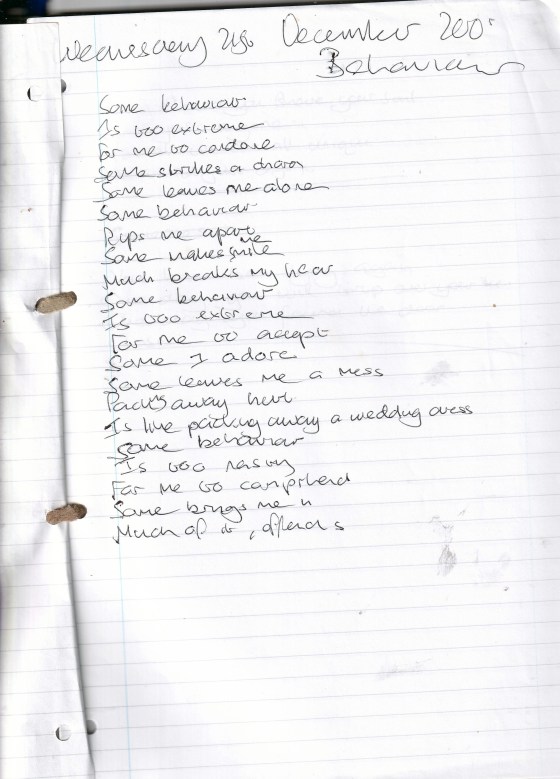 Wednesday 21st December 200
Behaviour
Some behaviour
Is too extreme
For me to condone
Some strikes a chord
Some leaves me alone
Some behaviour
Rips me apart
Some makes me smile
Much breaks my hear
Some behaviour
Is too extreme
For me to accept
Some I adore
Some leaves me a mess
Packing away
Is like packing away a wedding dress
Some behaviour
Is too nasty
For me to comprehend
Some brings me
Much of it, offends